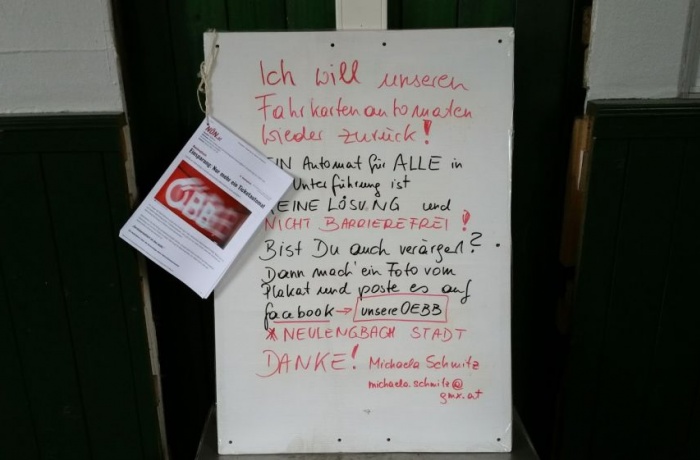 Ich will unseren
Fahrkartenautomaten
wieder zurück!
EIN Automat für ALLE in
Unterführung ist
KEINE LÖSUNG und
NICHT BARRIEREFREI!
Bist Du auch verärgert?
Dann mach' ein Foto vom
Plakat und poste es auf
facebook → unsere OEBB
* NEULENGBACH STADT
DANKE! Michaela Schmitz
michaela.schmitz@
gmx.at
Einsparung: Nur mehr ein Ticketautomat
ÖBB